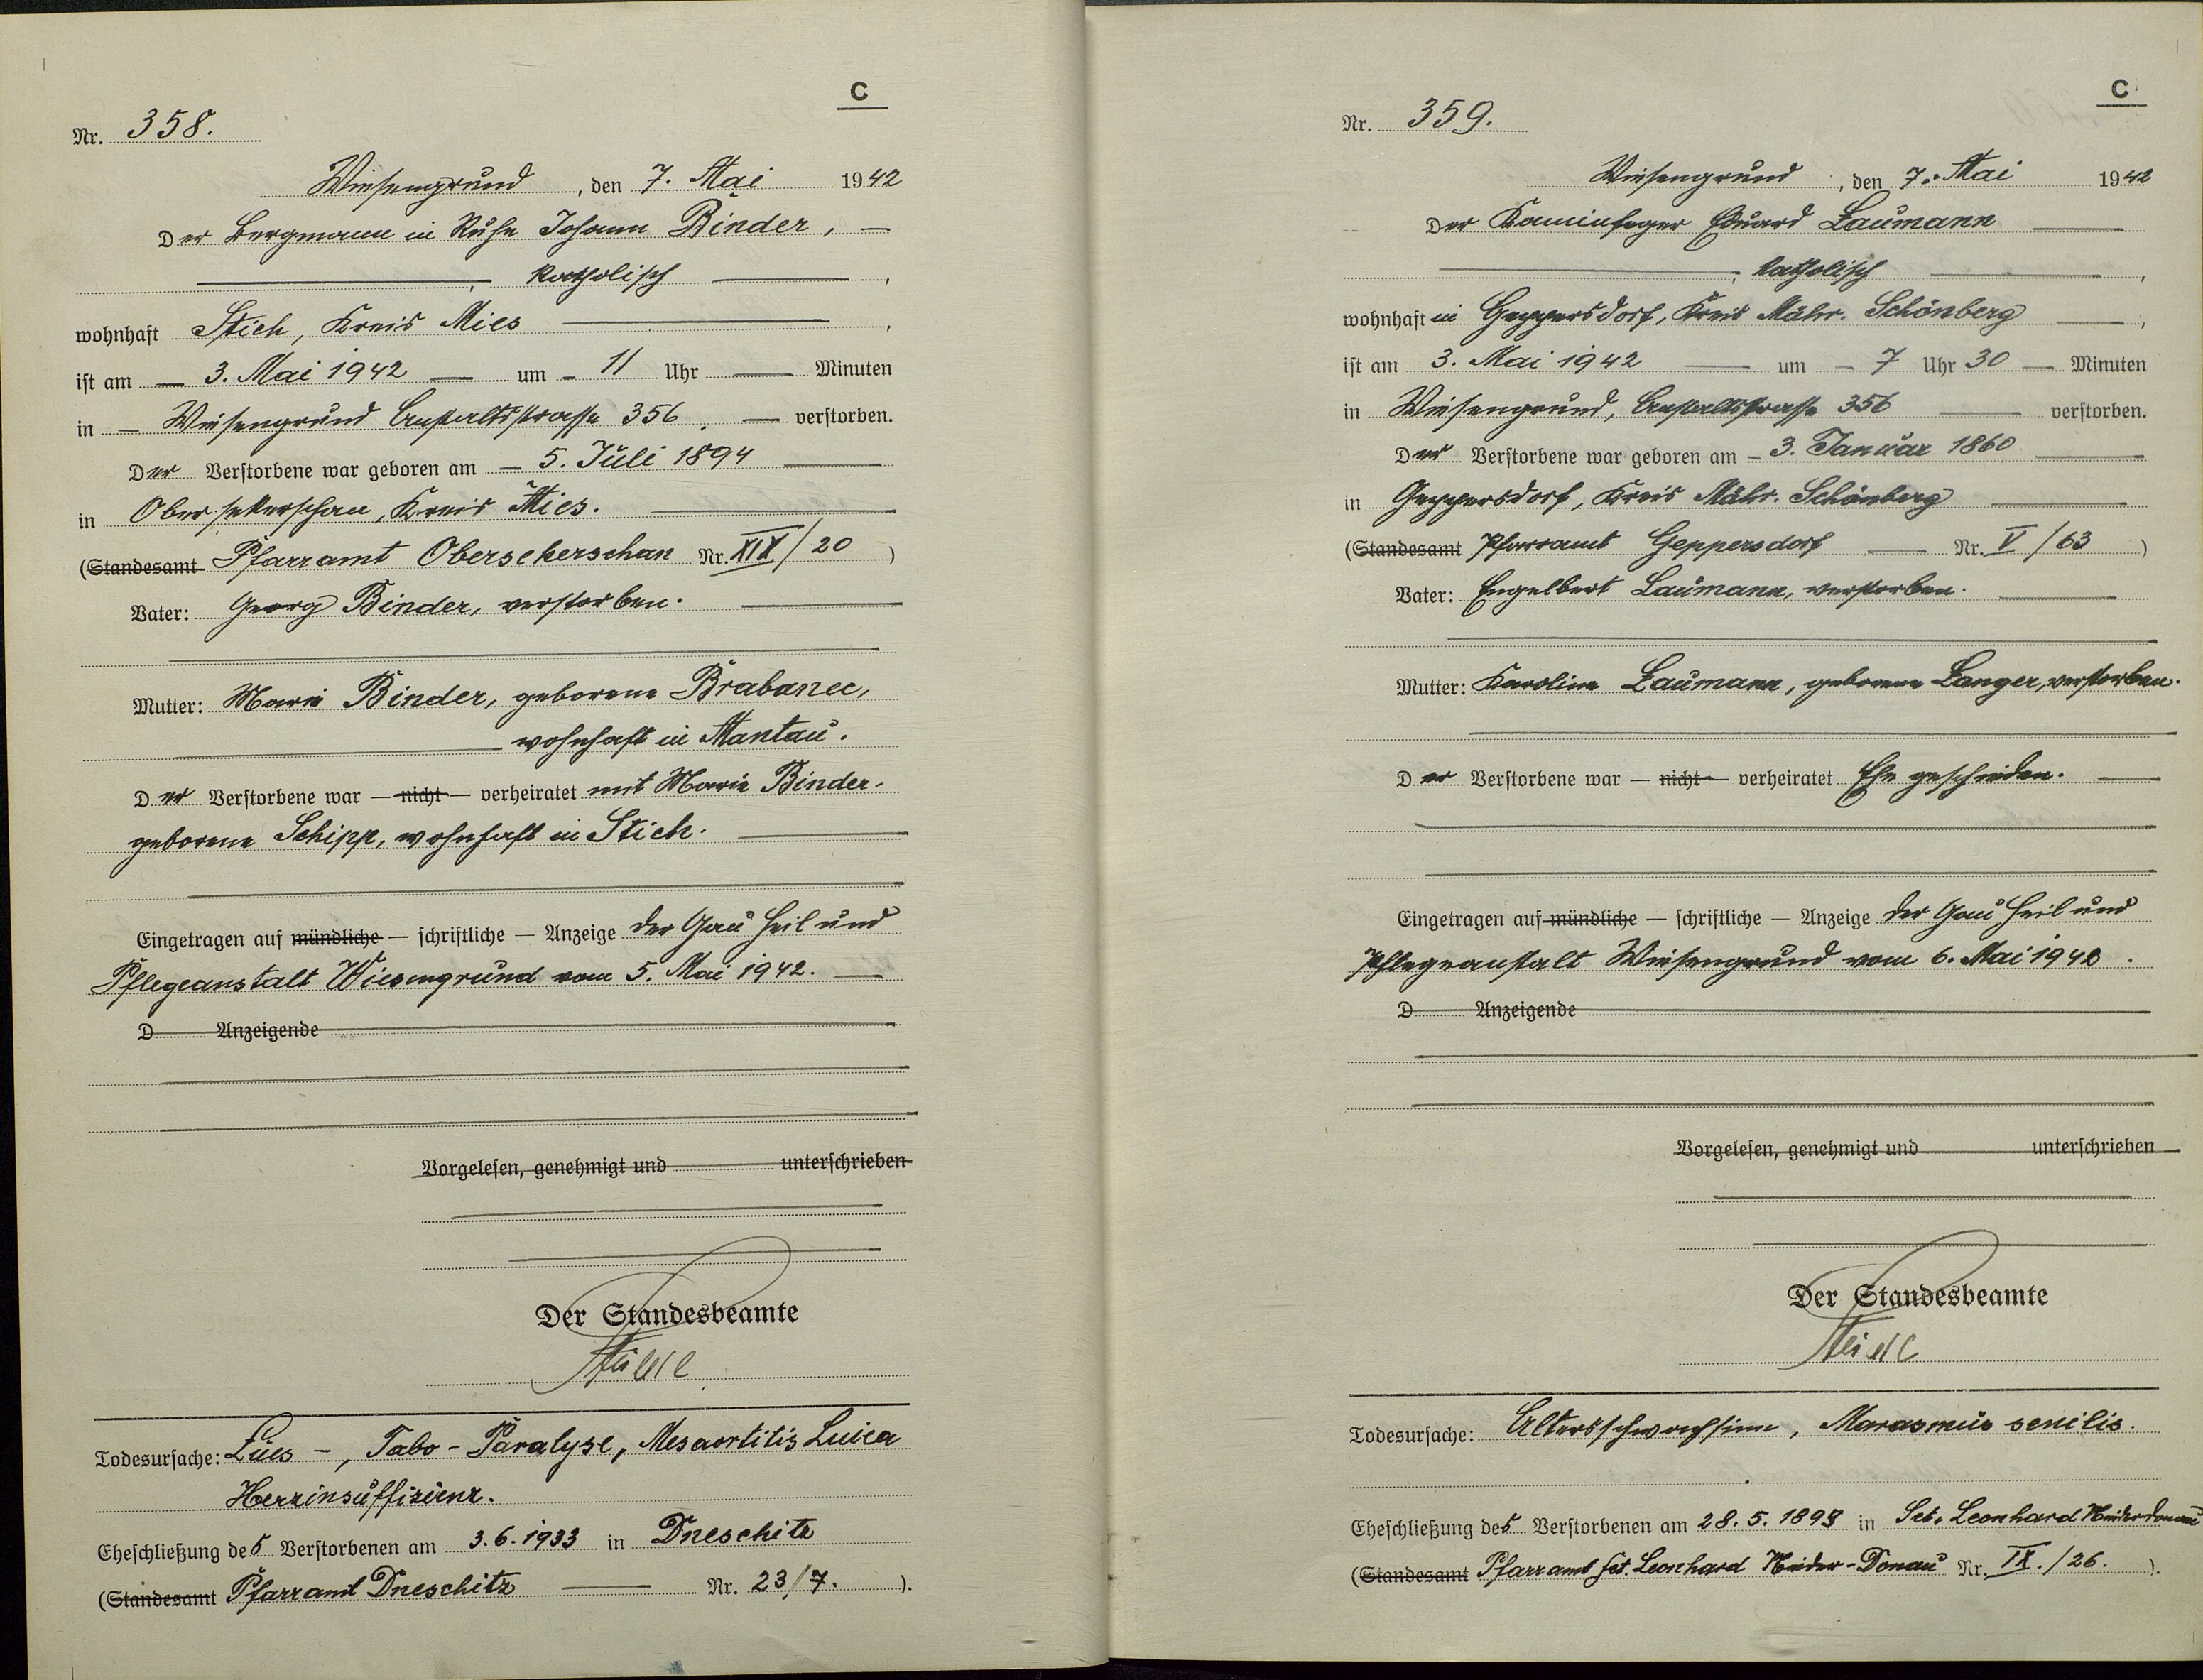 C
Nr. 358.
Wiesengrund, den 7. Mai 1942
Der Bergmann in Ruhe Johann Binder, —
—, katholisch —,
wohnhaft Stich, Kreis Mies —,
ist am — 3. Mai 1942 — um — 11 Uhr — Minuten
in — Wiesengrund Anstaltsstrasse 356, — verstorben.
Der Verstorbene war geboren am — 5. Juli 1894 —
in Ober sekerschan, Kreis Mies. —
(Standesamt Pfarramt Obersekerschan Nr. XIX/20)
Vater: Georg Binder, verstorben. —
Mutter: Marie Binder, geborene Brabanec,
— wohnhaft in Mantau.
Der Verstorbene war — nicht — verheiratet mit Marie Binder
geborene Schipp, wohnhaft in Stich. —
Eingetragen auf mündliche — schriftliche — Anzeige der Gau Heil und
Pflegeanstalt Wiesengrund vom 5. Mai 1942. —
D Anzeigende
Vorgelesen, genehmigt und unterschrieben
Der Standesbeamte
Todesursache: Lues —, Tabo-Paralyse, Mesaortitis Luica
Herzinsuffizienz.
Eheschließung des Verstorbenen am 3.6.1933 in Dneschitz
(Standesamt Pfarramt Dneschitz — Nr. 23/7.).
C
Nr. 359.
Wiesengrund, den 7. Mai 1942
Der Kaminfeger Eduard Laumann —
—, katholisch —,
wohnhaft in Geppersdorf, Kreis Mähr. Schönberg —,
ist am 3. Mai 1942 — um — 7 Uhr 30 — Minuten
in Wiesengrund, Anstaltsstrasse 356 — verstorben.
Der Verstorbene war geboren am — 3. Januar 1860 —
in Geppersdorf, Kreis Mähr. Schönberg —
(Standesamt Pfarramt Geppersdorf — Nr. V/63)
Vater: Engelbert Laumann, verstorben. —
Mutter: Karoline Laumann, geborene Langer, verstorben.
Der Verstorbene war — nicht — verheiratet Ehe geschieden. —
Eingetragen auf mündliche — schriftliche — Anzeige der Gau Heil und
Pflegeanstalt Wiesengrund vom 6. Mai 1942.
D Anzeigende
Vorgelesen, genehmigt und unterschrieben
Der Standesbeamte
Todesursache: Altersschwachsinn, Marasmus senilis.
Eheschließung des Verstorbenen am 28.5.1899 in Set. Leonhard Niederdonau
(Standesamt Pfarramt Set. Leonhard Nieder-Donau Nr. IX./26.).